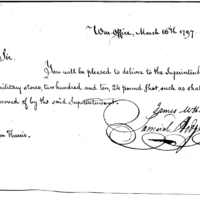 War-Office, March 16th 1797.
Sir.
You will be pleased to deliver to the Superintend
military stores, two hundred and ten 24 pound Shot, such as shall
of by the said Superintendent.
James McH
Samuel Hodg
Harris.